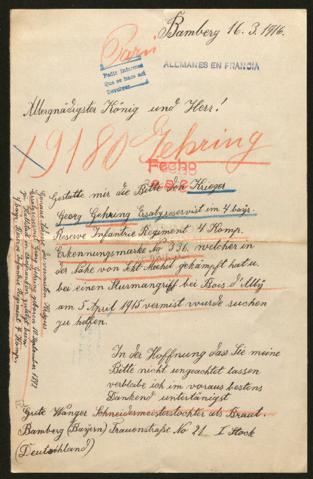 Bamberg 16.3.1916.
Paris
Pedir informes
Que se haga así
Devolver
ALEMANES EN FRANCIA
Allergnädigster König und Herr!
19180 Gehring
Fecho
Gestatte mir die Bitte den Krieger
Georg Gehring Ersatzreservist im 4 bayr.
Reserve Infantrie Regiment 4 Komp.
Erkennungsmarke No 336, welcher in
der Nähe von Sckt Michel gekämpft hat u.
bei einen Sturmangriff bei Bois d'Ailly
am 5 April 1915 vermist wurde suchen
zu helfen.
In der Hoffnung dass Sie meine
Bitte nicht ungeachtet lassen
verbleibe ich im voraus bestens
Dankend untertänigst
Grete Wänger Schneidermeisterstochter als Braut.
Bamberg (Bayern) Frauenstraße No 21 I Stock
(Deutschland)